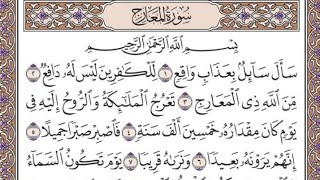 سُورَةُ المَعَارِجِ
بِسْمِ اللَّهِ الرَّحْمَٰنِ الرَّحِيمِ
سَأَلَ سَآئِلُۢ بِعَذَابٖ وَاقِعٖ ١ لِّلۡكَٰفِرِينَ لَيۡسَ لَهُۥ دَافِعٞ ٢
مِّنَ ٱللَّهِ ذِي ٱلۡمَعَارِجِ ٣ تَعۡرُجُ ٱلۡمَلَٰٓئِكَةُ وَٱلرُّوحُ إِلَيۡهِ فِي
يَوۡمٖ كَانَ مِقۡدَارُهُۥ خَمۡسِينَ أَلۡفَ سَنَةٖ ٤ فَٱصۡبِرۡ صَبۡرٗا جَمِيلًا ٥
إِنَّهُمۡ يَرَوۡنَهُۥ بَعِيدٗا ٦ وَنَرَىٰهُ قَرِيبٗا ٧ يَوۡمَ تَكُونُ ٱلسَّمَآءُ